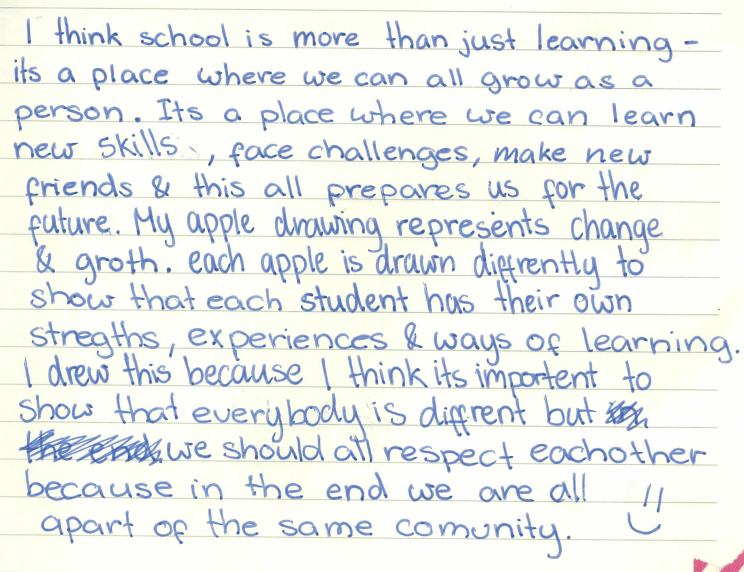 I think school is more than just learning -
its a place where we can all grow as a
person. Its a place where we can learn
new skills, face challenges, make new
friends & this all prepares us for the
future. My apple drawing represents change
& groth. each apple is drawn diffrently to
show that each student has their own
stregths, experiences & ways of learning.
I drew this because I think its importent to
show that everybody is diffrent but
we should all respect eachother
because in the end we are all
apart of the same comunity.